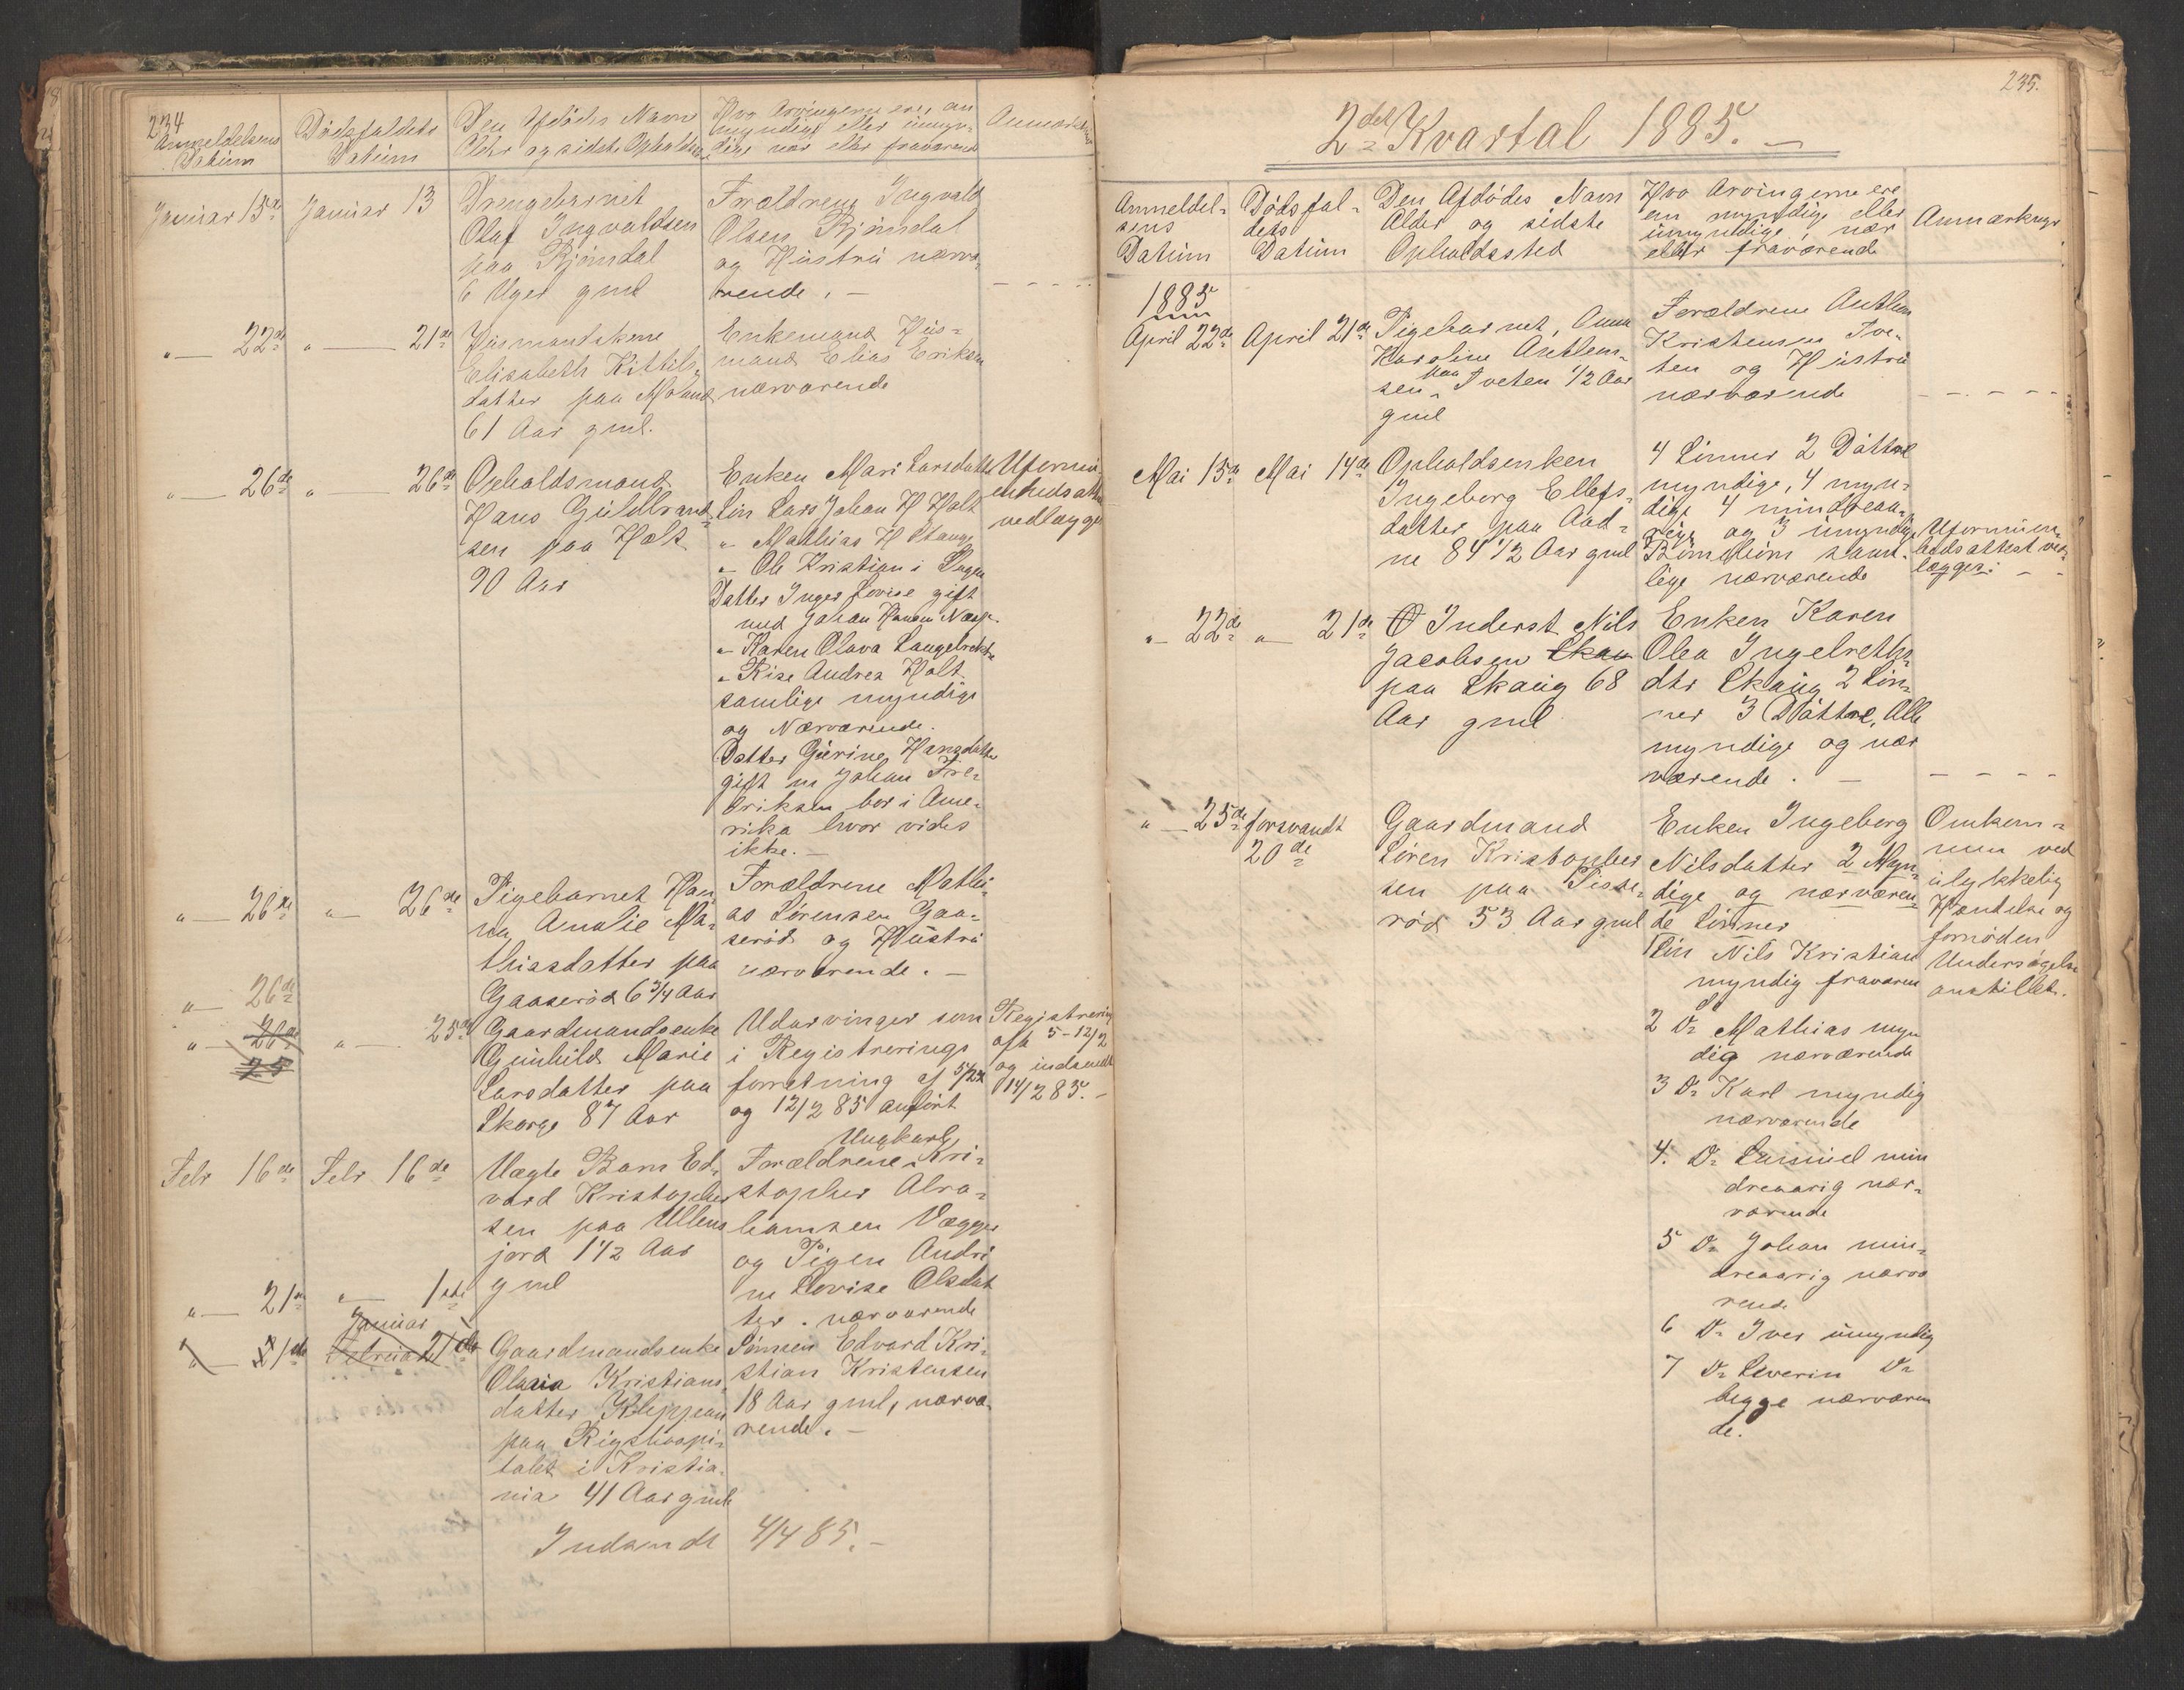 234
Anmeldelsens
Datum
Dødsfaldets
Datum
Den Afdødes Navn
Alder og sidste Opholdss
Hvo Arvingerne ere, om
myndige eller umyn-
dige nær eller fraværende
Januar 15de
Januar 13
Drengebarnet
Olaf Ingvaldsen
paa Bjørndal
6 Uger gml
Forældrene Ingvald
Olsen Bjørndal
og Hustru nærvæ-
rende. -
" 22de
" 21de
Husmandskone
Elisabeth Kittils-
datter paa Moland
61 Aar gml.
Enkemand Hus-
mand Elias Eriksen
nærværende
" 26de
" 26de
Opholdsmand
Hans Guldbrand-
sen paa Holt
90 Aar
Enken Mari Larsdatter
Søn Lars Johan H Holt
" Mathias H Stange
" Ole Kristian i
Datter Inger Lovise gift
med Johan Hansen
" Karen Olava
" Rise Andrea Holt
samlige myndige
og Nærværende.
Datter Gurine Hansdatter
gift m Johan Fre-
driksen bor i Ame-
rika hvor vides
ikke. -
Uformu-
enhedsatt
vedlægges
" 26de
" 26de
Pigebarnet Han
na Amalie Ma-
thiasdatter paa
Gaaserød 6 3/4 Aar
Forældrene Mathi-
as Sørensen Gaa-
serød og Hustru
nærværende. -
" 26de
" 26de
25
" 25de
Gaardmandsenke
Gunhild Marie
Larsdatter paa
Skorge 87 Aar
Udarvinger som
i Registrerings
forretning af 5/2
og 12/2 85 anført
Registrering
afh 5-12/2
og indsendt
14/2 85. -
Febr 16de
Febr 16de
Uægte Barn Ed-
vard Kristopher
sen paa Ullens
jord 1 1/2 Aar
gml
Ungkarl
Forældrene Kri-
stopher Abra-
hamsen Vegger
og Pigen Andri
ne Lovise Olsdat
ter. nærværende
" 21de
" 1ste
Januar
" 21de
Februar 21de
Gaardmandsenke
Olava Kristians
datter Kleppen
paa Rigshospi-
talet i Kristia-
nia 41 Aar gml
Sønnen Edvard Kri-
stian Kristensen
18 Aar gml, nærvæ-
rende. -
Indsendt 4/4 85. -
235.
2det Kvartal 1885. -
Anmeldel-
sens
Datum
Dødsfal-
dets
Datum
Den Afdødes Navn
Alder og sidste
Opholdssted
Hvo Arvingerne ere
om myndige eller
umyndige, nær
eller fraværende
Anmærkngr
1885
April 22de
April 21de
Pigebarnet, Anna
Karoline Anthon-
sen paa Tveten 1/2 Aar
gml
Forældrene Anthon
Kristensen Tve-
ten og Hustru
nærværende
Mai 15de
Mai 14de
Opholdsenken
Ingeborg Ellefs-
datter paa Aad-
ne 84 1/2 Aar gml
4 Sønner 2 Døttre
myndige, 4 myn-
dige 4 mindreaa-
rige og 3 umyndige
Børnebørn sam-
lige nærværende
Uformuen-
hedsattest ved-
lægges. -
" 22de
" 21de
Inderst Nils
Jacobsen Skau
paa Skaug 68
Aar gml
Enken Karen
Olea Ingelreths
dtr Skaug 2 Søn-
ner 3 Døttre, Alle
myndige og nær
værende. -
" 25de
forsvandt
20de
Gaardmand
Søren Kristopher
sen paa Tisse-
rød 53 Aar gml
Enken Ingeborg
Nilsdatter 2 Myn-
dige og nærværen-
de Sønner
1 Søn Nils Kristian
myndig fraværen
de
2 Do Mathias myn
dig nærværende
3 Do Karl myndig
nærværende
4. Do Samuel min
dreaarig nær-
værende
5 Do Johan min-
dreaarig nærvæ
rende
6 Do Iver umyndig
7 Do Severin Do
begge nærværen
de.
Omkom-
men ved
ulykkelig
Hændelse og
fornøden
Undersøgelse
anstillet.